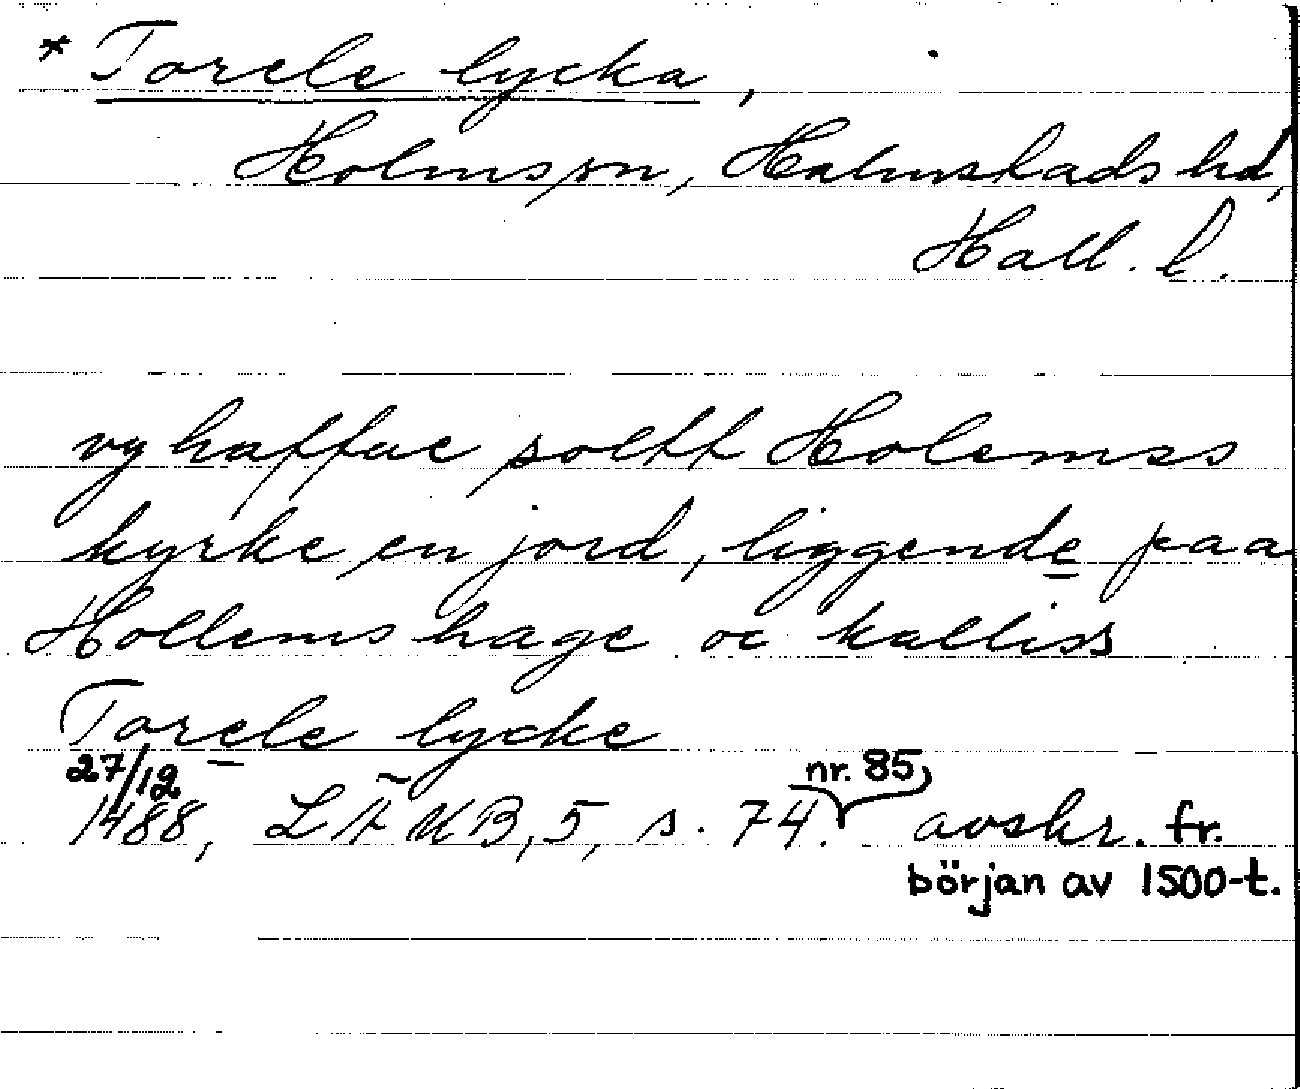 * Torele lycka,
Holms sn, Halmstads hd,
Hall. l.
vy haffue soltt Holemss
kyrke en jord, liggende paa
Hollems hage oc kalliss
Torele lycke
27/12 nr. 85,
1488, LÄUB, 5, s. 74. avskr. fr.
början av 1500-t.